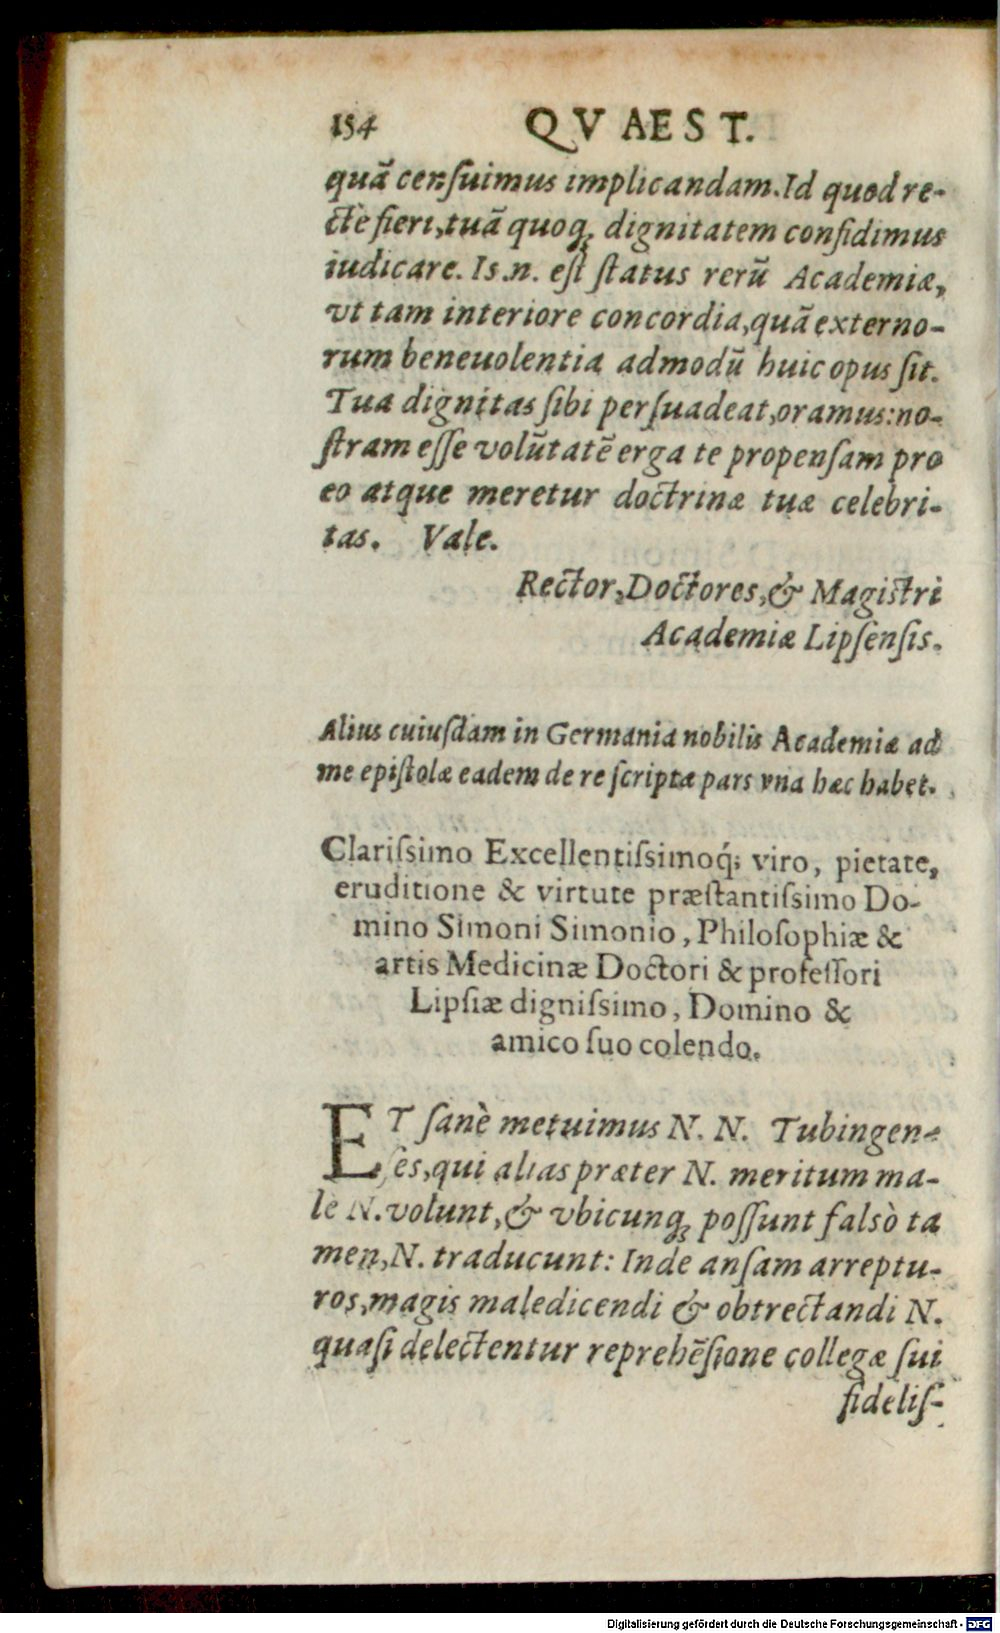 154 QVAEST.
quã censuimus implicandam. Id quod re-
ctè fieri, tuã quoq; dignitatem confidimus
iudicare. Is .n. est status rerũ Academiæ,
vt tam interiore concordia, quã externo-
rum beneuolentia admodũ huic opus sit.
Tua dignitas sibi persuadeat, oramus: no-
stram esse volũtatẽ erga te propensam pro
eo atque meretur doctrinæ tuæ celebri-
tas. Vale.
Rector, Doctores, & Magistri
Academiæ Lipsensis.
Alius cuiusdam in Germania nobilis Academiæ ad
me epistolæ eadem de re scriptæ pars vna hæc habet.
Clarissimo Excellentissimoq́; viro, pietate,
eruditione & virtute præstantissimo Do-
mino Simoni Simonio, Philosophiæ &
artis Medicinæ Doctori & professori
Lipsiæ dignissimo, Domino &
amico suo colendo.
ET sanè metuimus N. N. Tubingen-
ses, qui alias præter N. meritum ma-
le N. volunt, & vbicunq; possunt falsò ta
men, N. traducunt: Inde ansam arreptu-
ros, magis maledicendi & obtrectandi N.
quasi delectentur reprehẽsione collegæ sui
fidelis-
Digitalisierung gefördert durch die Deutsche Forschungsgemeinschaft - DFG